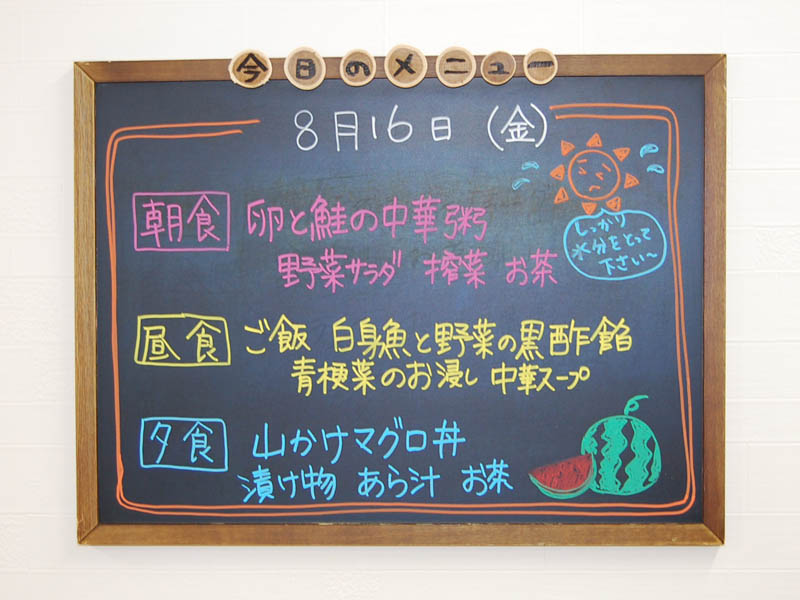 今日のメニュー
8月16日 (金)
朝食 卵と鮭の中華粥
野菜サラダ 搾菜 お茶
しっかり
水分をとって
下さい〜
昼食 ご飯 白身魚と野菜の黒酢餡
青梗菜のお浸し 中華スープ
夕食 山かけマグロ丼
漬け物 あら汁 お茶